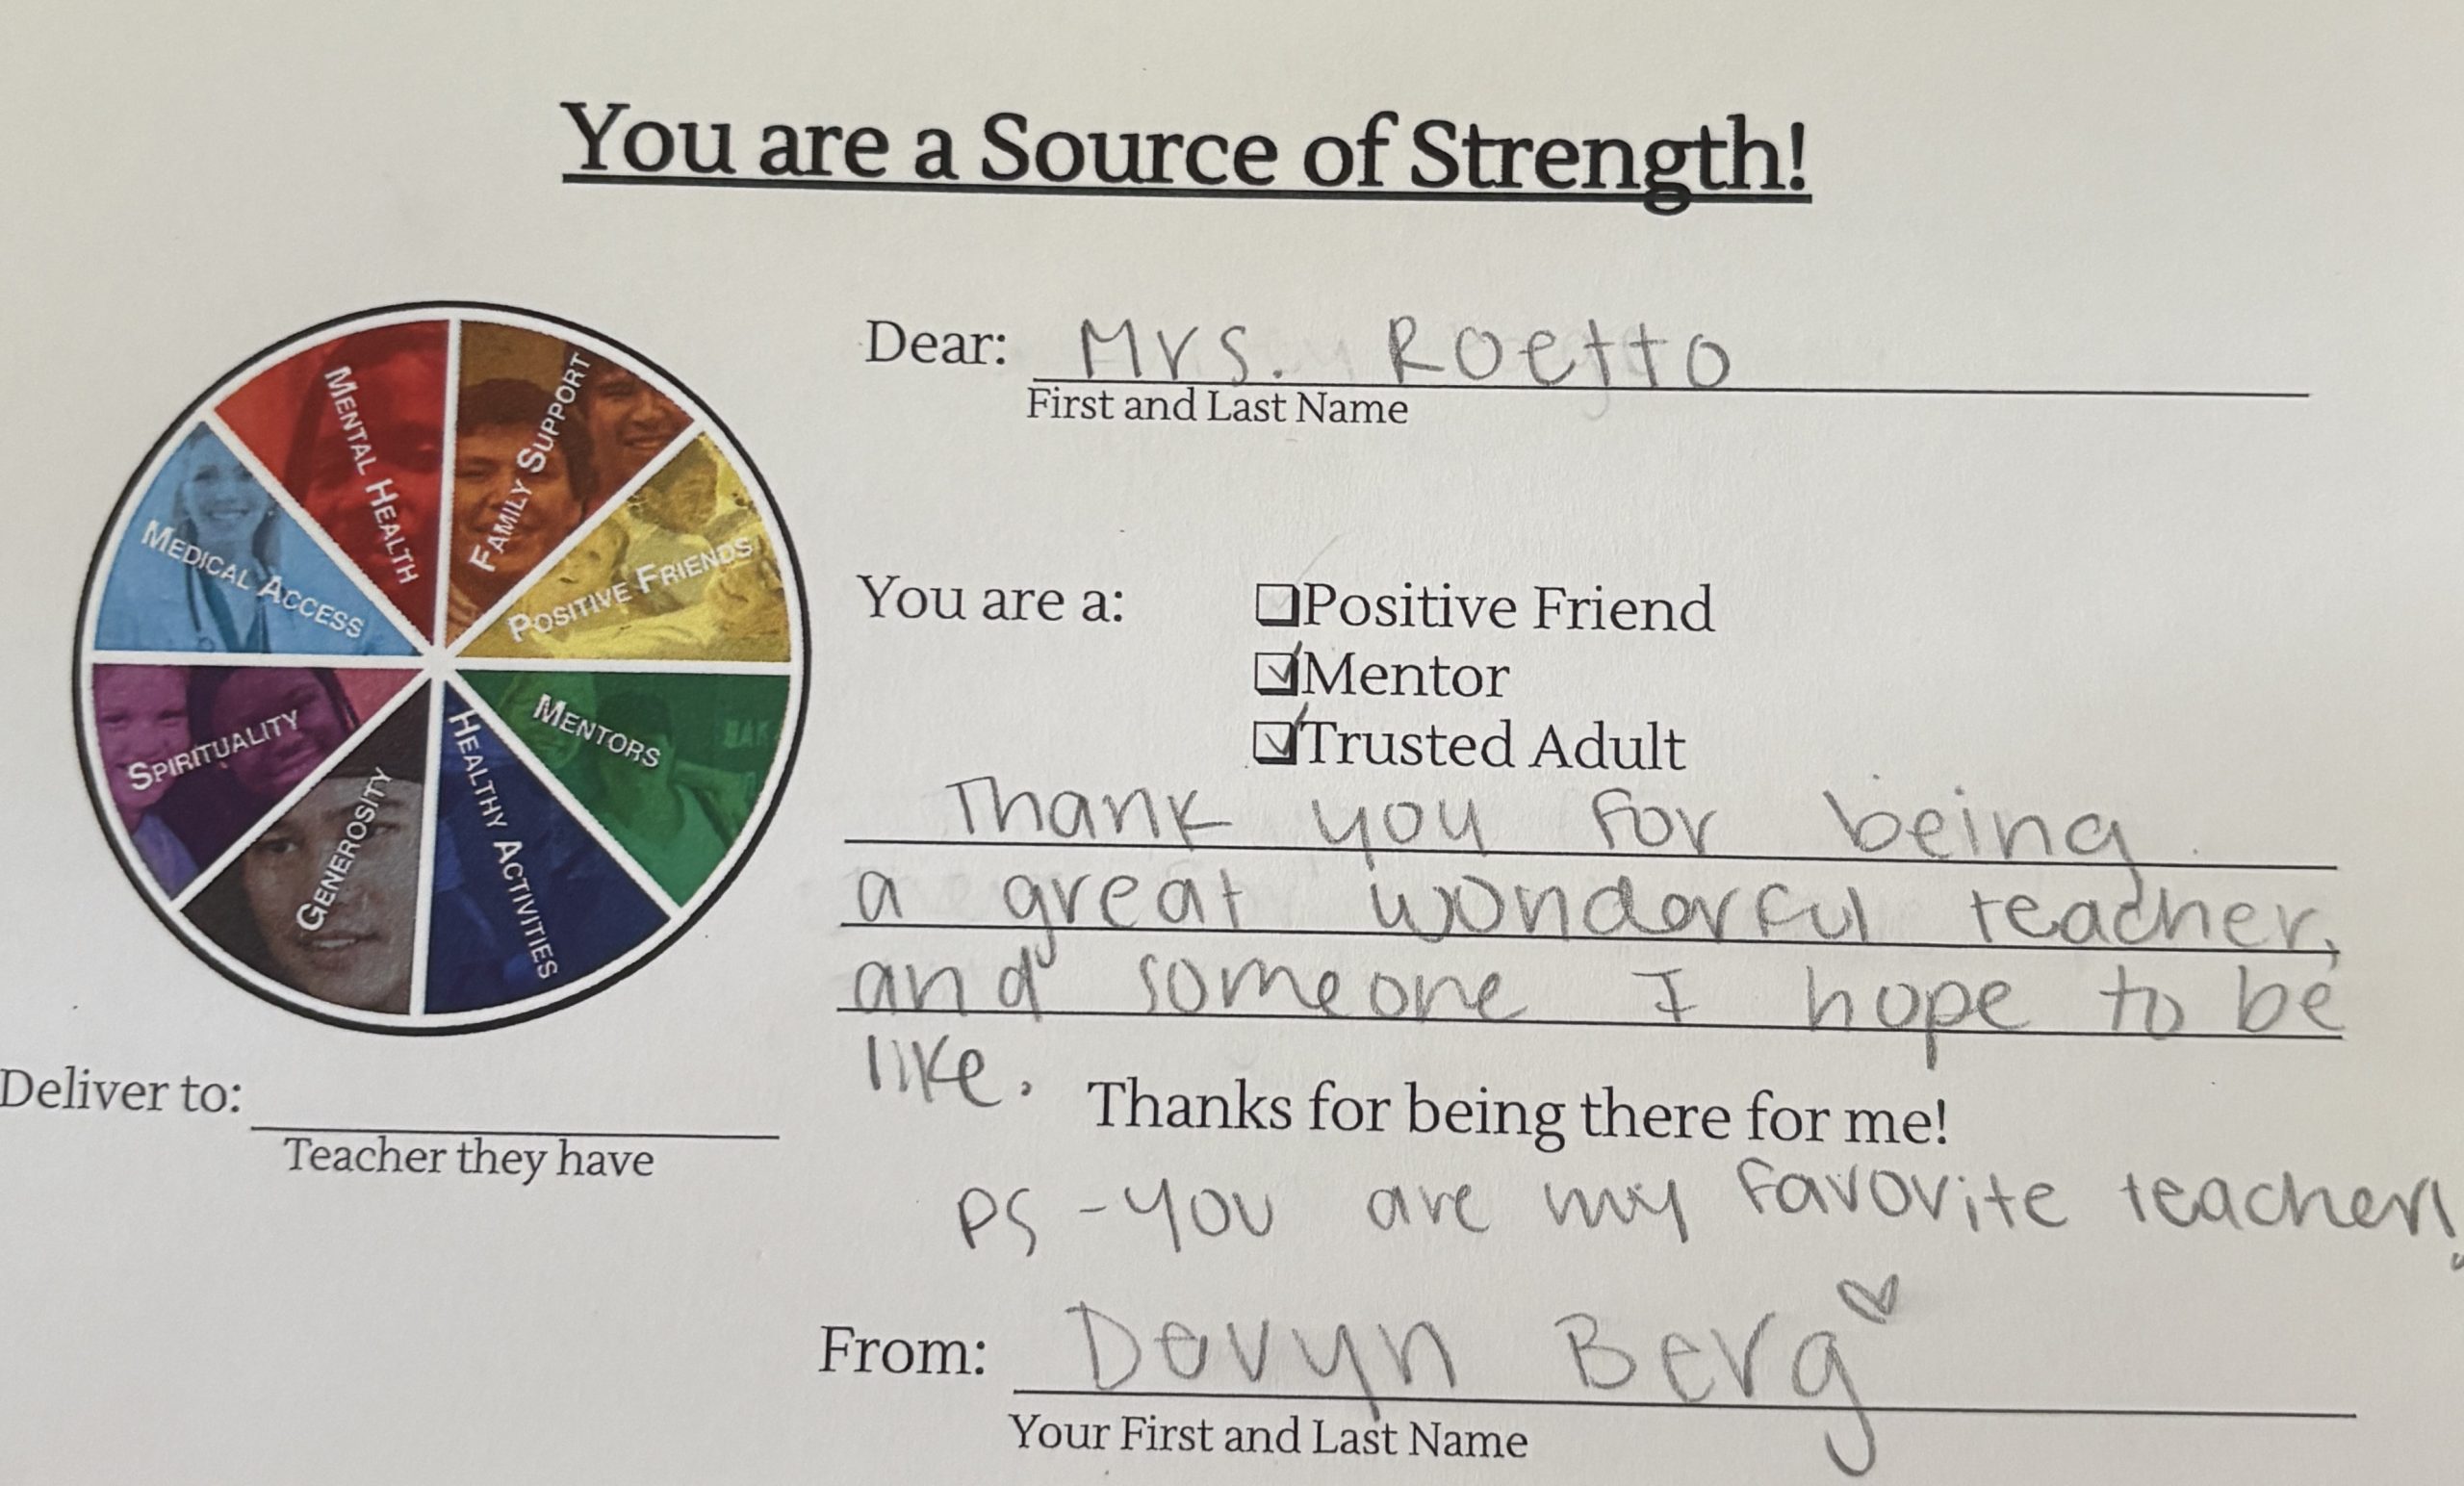 You are a Source of Strength!
Dear: Mrs. Roetto
First and Last Name
MENTAL HEALTH
FAMILY SUPPORT
POSITIVE FRIENDS
MENTORS
HEALTHY ACTIVITIES
GENEROSITY
SPIRITUALITY
MEDICAL ACCESS
You are a:
☐Positive Friend
☑Mentor
☑Trusted Adult
Thank you for being
a great wonderful teacher,
and someone I hope to be
like.
Thanks for being there for me!
Deliver to:
Teacher they have
PS - you are my favorite teacher!
From: Devyn Berg♡
Your First and Last Name